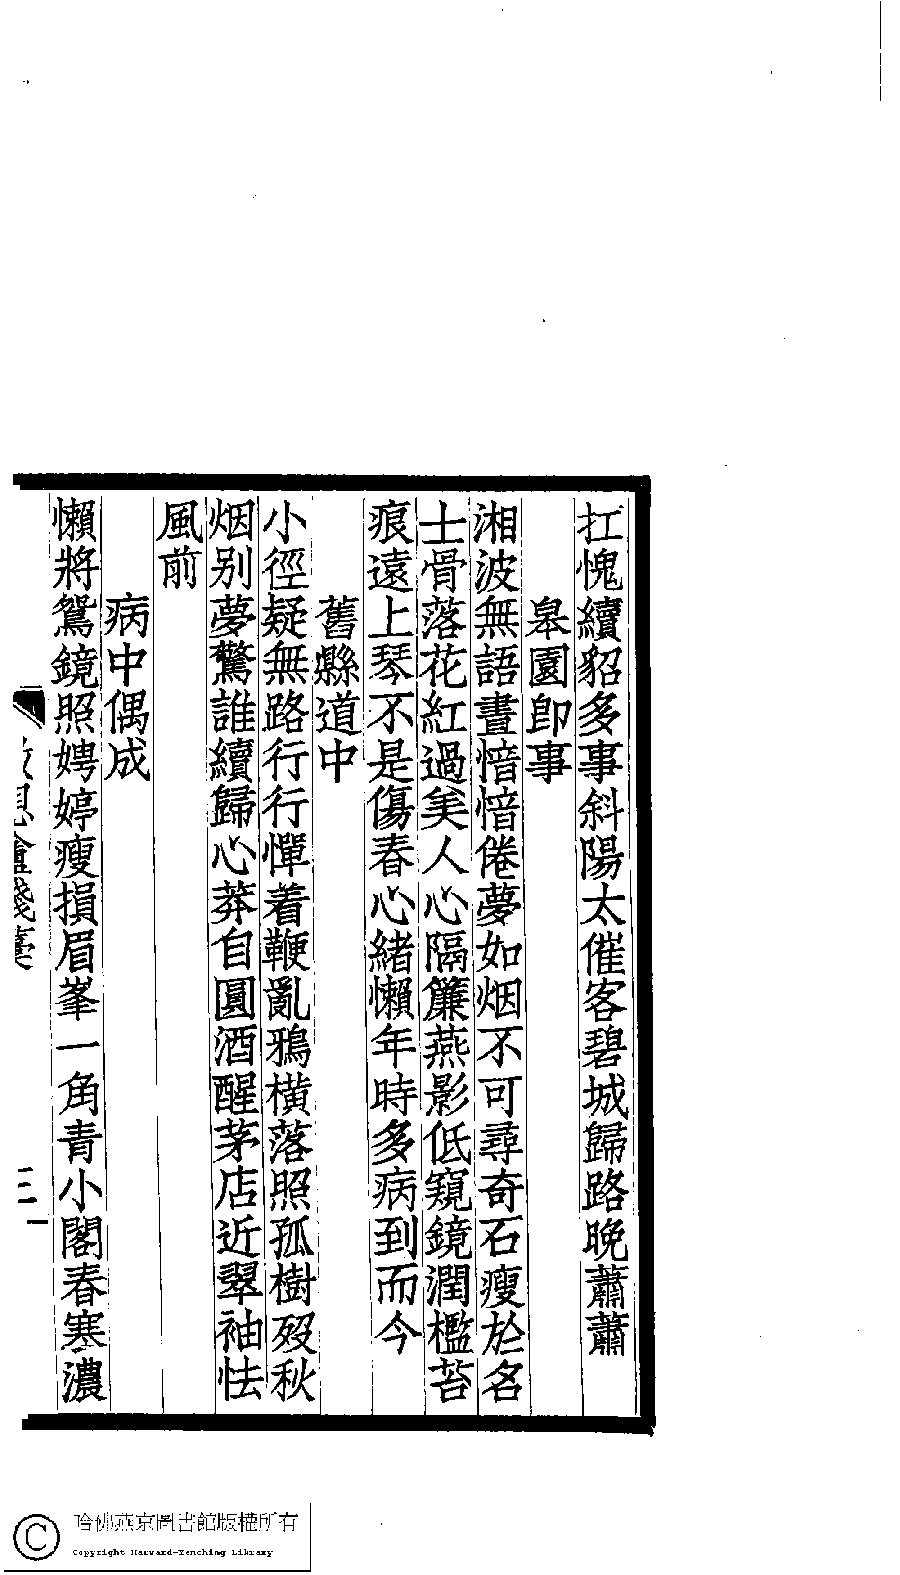 扛愧續貂多事斜陽太催客碧城歸路晚蕭蕭
皋園即事
湘波無語晝愔愔倦夢如烟不可尋奇石瘦於名
士骨落花紅過美人心隔簾燕影低窺鏡潤檻苔
痕遠上琴不是傷春心緒懶年時多病到而今
舊縣道中
小徑疑無路行行憚着鞭亂鴉橫落照孤樹歿秋
烟别夢驚誰續歸心莽自圓酒醒茅店近翠袖怯
風前
病中偶成
懶將鴛鏡照娉婷瘦損眉峯一角青小閣春寒濃
思盦殘稾
三一
哈佛燕京圖書館版權所有
Copyright Harvard-Yenching Library